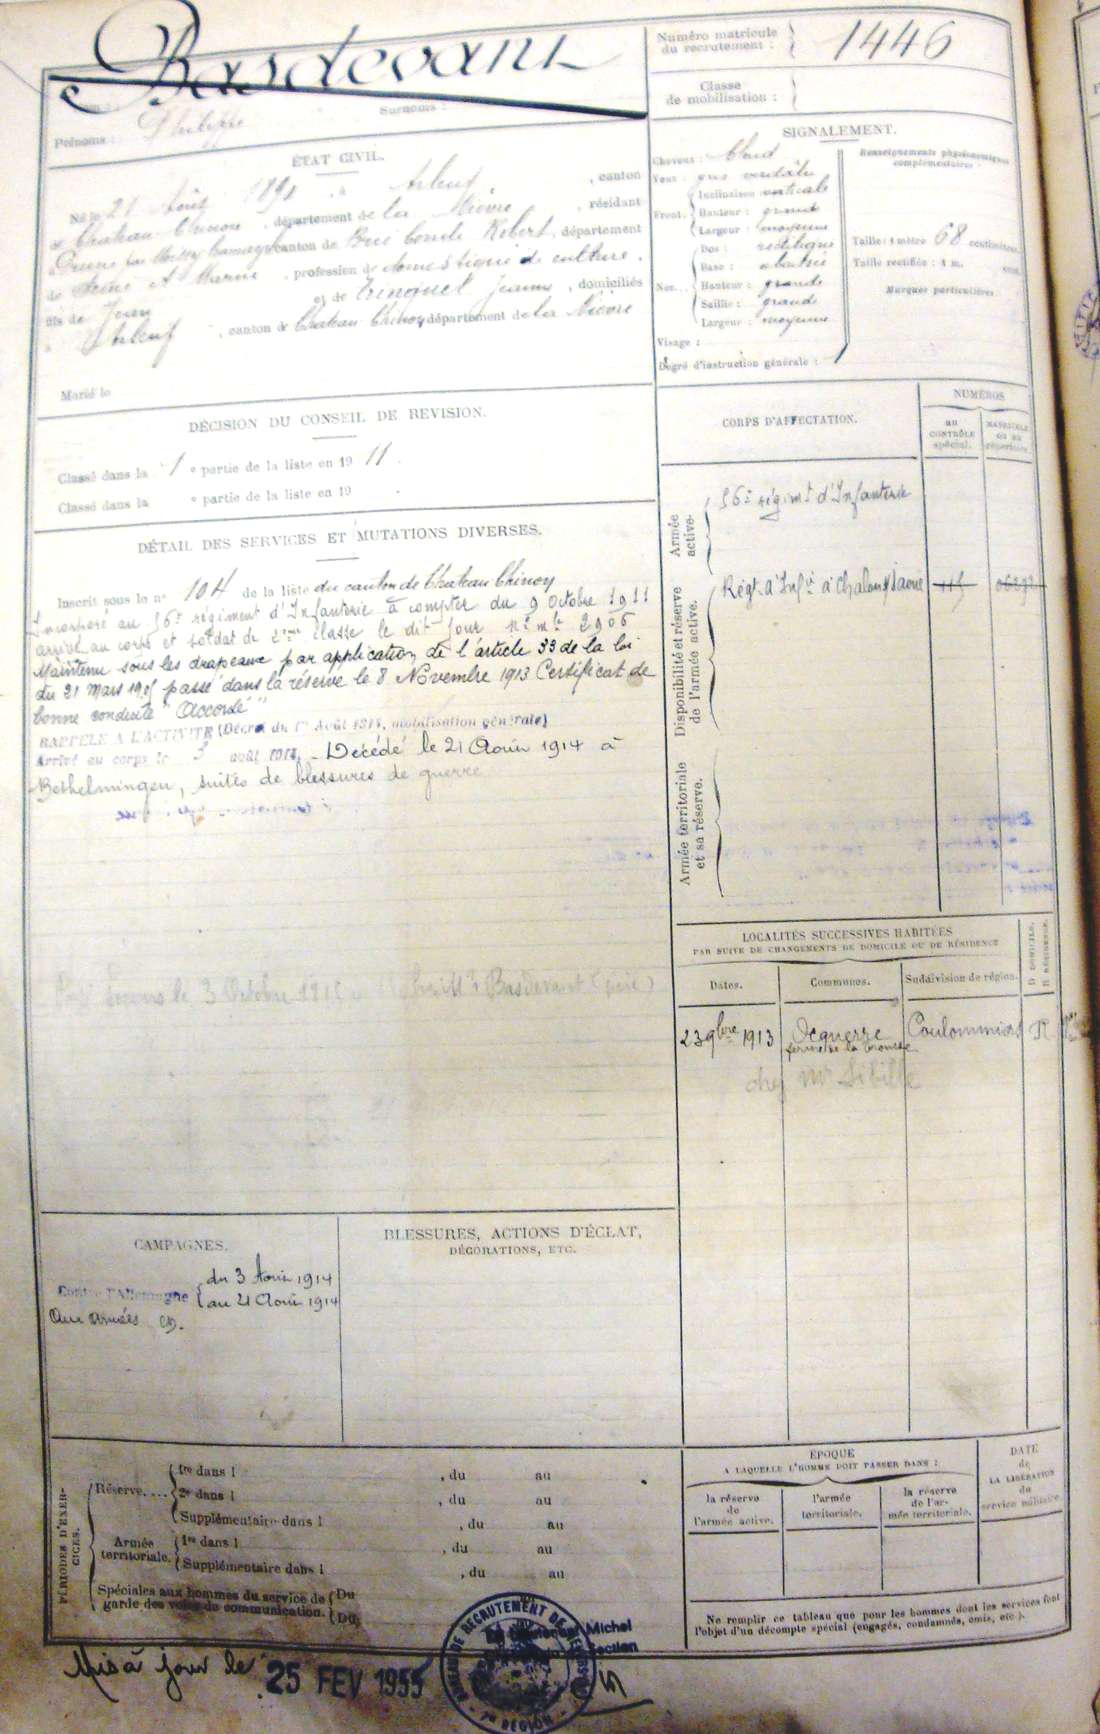 Basdevant
Numéro matricule
du recrutement :
1446
Classe
de mobilisation :
Prénoms : Philippe
Surnoms :
ÉTAT CIVIL.
Né le 21 Août 1891 à Arleuf, canton
d Chateau Chinon, département de la Nièvre, résidant
canton de Brie Comte Robert, département
de Seine et Marne, profession de domestique de culture,
fils de Jean et de Trinquet Jeanne, domiciliés
à Arleuf, canton de Chateau Chinon, département de la Nièvre
Marié le
SIGNALEMENT.
Cheveux : blond
Yeux : gris verdâtre
Front. Inclinaison verticale
Hauteur : grande
Largeur : moyenne
Nez... Dos : rectiligne
Base : abaissée
Hauteur : grande
Saillie : grande
Largeur : moyenne
Visage :
Degré d'instruction générale :
Renseignements physionomiques
complémentaires :
Taille : 1 mètre 68 centimètres.
Taille rectifiée : 1 m. cent.
Marques particulières
DÉCISION DU CONSEIL DE REVISION.
Classé dans la 1 e partie de la liste en 19 11.
Classé dans la e partie de la liste en 19 .
CORPS D'AFFECTATION.
NUMÉROS
au
CONTRÔLE
spécial.
MATRICULE
ou au
répertoire.
Armée
active.
56e régimt d'Infanterie
Disponibilité et réserve
de l'armée active.
Régt. d'Infie à Chalon s/ Saone
Armée territoriale
et sa réserve.
DÉTAIL DES SERVICES ET MUTATIONS DIVERSES.
Inscrit sous le no 104 de la liste du canton de Chateau Chinon
Incorporé au 56e régiment d'Infanterie à compter du 9 Octobre 1911
arrivé au corps et soldat de 2eme classe le dit jour No mle 2906
Maintenu sous les drapeaux par application de l'article 33 de la loi
du 21 Mars 1905 passé dans la réserve le 8 Novembre 1913 Certificat de
bonne conduite "Accordé"
RAPPELÉ A L'ACTIVITÉ (Décret du 1er Août 1914, mobilisation générale)
Arrivé au corps le 3 août 1914. - Décédé le 21 Août 1914 à
Bethelmingen, suites de blessures de guerre
le 3 Octobre 1915 Basdevant (père)
LOCALITÉS SUCCESSIVES HABITÉES
PAR SUITE DE CHANGEMENTS DE DOMICILE OU DE RÉSIDENCE
Dates.
Communes.
Subdivision de région.
D DOMICILE.
R RÉSIDENCE.
23 9bre 1913 Ocquerre Coulommiers R
ferme de la
chez Mr Sibille
CAMPAGNES.
Contre l'Allemagne du 3 Août 1914
au 21 Août 1914
Aux armées
BLESSURES, ACTIONS D'ÉCLAT,
DÉCORATIONS, ETC.
PÉRIODES D'EXERCICES.
Réserve.... 1re dans l , du au
2e dans l , du au
Supplémentaire dans l , du au
Armée
territoriale. 1re dans l , du au
Supplémentaire dans l , du au
Spéciales aux hommes du service de Du
garde des voies de communication. Du
ÉPOQUE
A LAQUELLE L'HOMME DOIT PASSER DANS :
la réserve
de
l'armée active.
l'armée
territoriale.
la réserve
de l'ar-
mée territoriale.
DATE
de
LA LIBÉRATION
du
service militaire.
Ne remplir ce tableau que pour les hommes dont les services font
l'objet d'un décompte spécial (engagés, condamnés, omis, etc.).
Mis à jour le 25 FEV 1955
RECRUTEMENT DE
RÉGION
Michel
Section